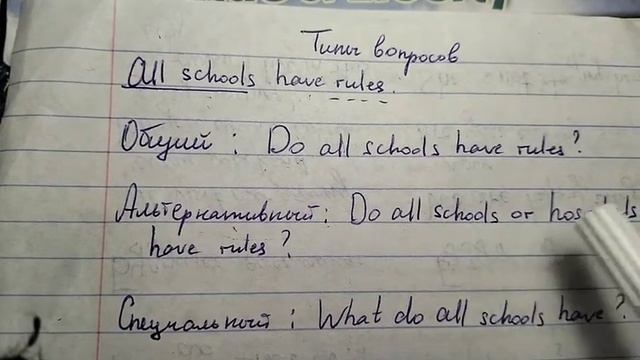 Типы вопросов
All schools have rules.
Общий: Do all schools have rules?
Альтернативный: Do all schools or
have rules?
Специальный: What do all schools have?